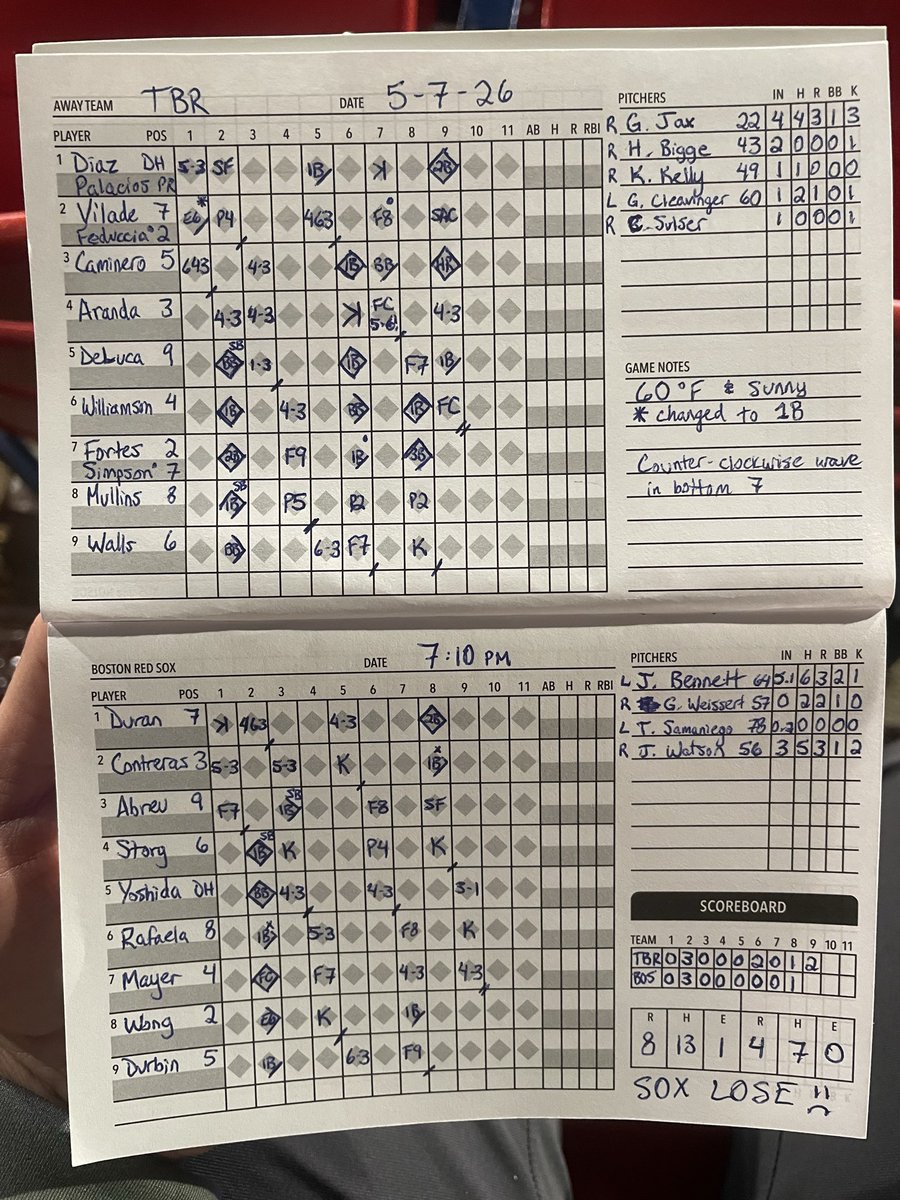 AWAY TEAM TBR DATE 5-7-26
PLAYER POS 1 2 3 4 5 6 7 8 9 10 11 AB H R RBI
1 Diaz DH 5-3 SF 1B K 2B
Palacios PR
2 Vilade 7 E6* P4 463 F8 SAC
Feduccia 2
3 Caminero 5 643 4-3 1B BB HR
4 Aranda 3 4-3 4-3 K FC 5-6 4-3
5 DeLuca 9 BB SB 1-3 1B F7 1B
6 Williamson 4 1B 4-3 BB 1B FC
7 Fortes 2 2B F9 1B 3B
Simpson 7
8 Mullins 8 1B SB P5 P2 P2
9 Walls 6 BB 6-3 F7 K
PITCHERS IN H R BB K
R G. Jax 22 4 4 3 1 3
R H. Bigge 43 2 0 0 0 1
R K. Kelly 49 1 1 0 0 0
L G. Cleavinger 60 1 2 1 0 1
R C. Sulser 1 0 0 0 1
GAME NOTES
60°F & Sunny
* changed to 1B
Counter-clockwise wave
in bottom 7
BOSTON RED SOX DATE 7:10 PM
PLAYER POS 1 2 3 4 5 6 7 8 9 10 11 AB H R RBI
1 Duran 7 K 463 4-3 2B
2 Contreras 3 5-3 5-3 K 1B x
3 Abreu 9 F7 1B SB F8 SF
4 Story 6 1B SB K P4 K
5 Yoshida DH BB 4-3 4-3 3-1
6 Rafaela 8 1B x 5-3 F8 K
7 Mayer 4 FC F7 4-3 4-3
8 Wong 2 E6 K 1B
9 Durbin 5 1B 6-3 F9
PITCHERS IN H R BB K
L J. Bennett 64 5.1 6 3 2 1
R G. Weissert 57 0 2 2 1 0
L T. Samaniego 78 0.2 0 0 0 0
R J. Watson 56 3 5 3 1 2
SCOREBOARD
TEAM 1 2 3 4 5 6 7 8 9 10 11
TBR 0 3 0 0 0 2 0 1 2
BOS 0 3 0 0 0 0 0 1
R H E R H E
8 13 1 4 7 0
SOX LOSE :(